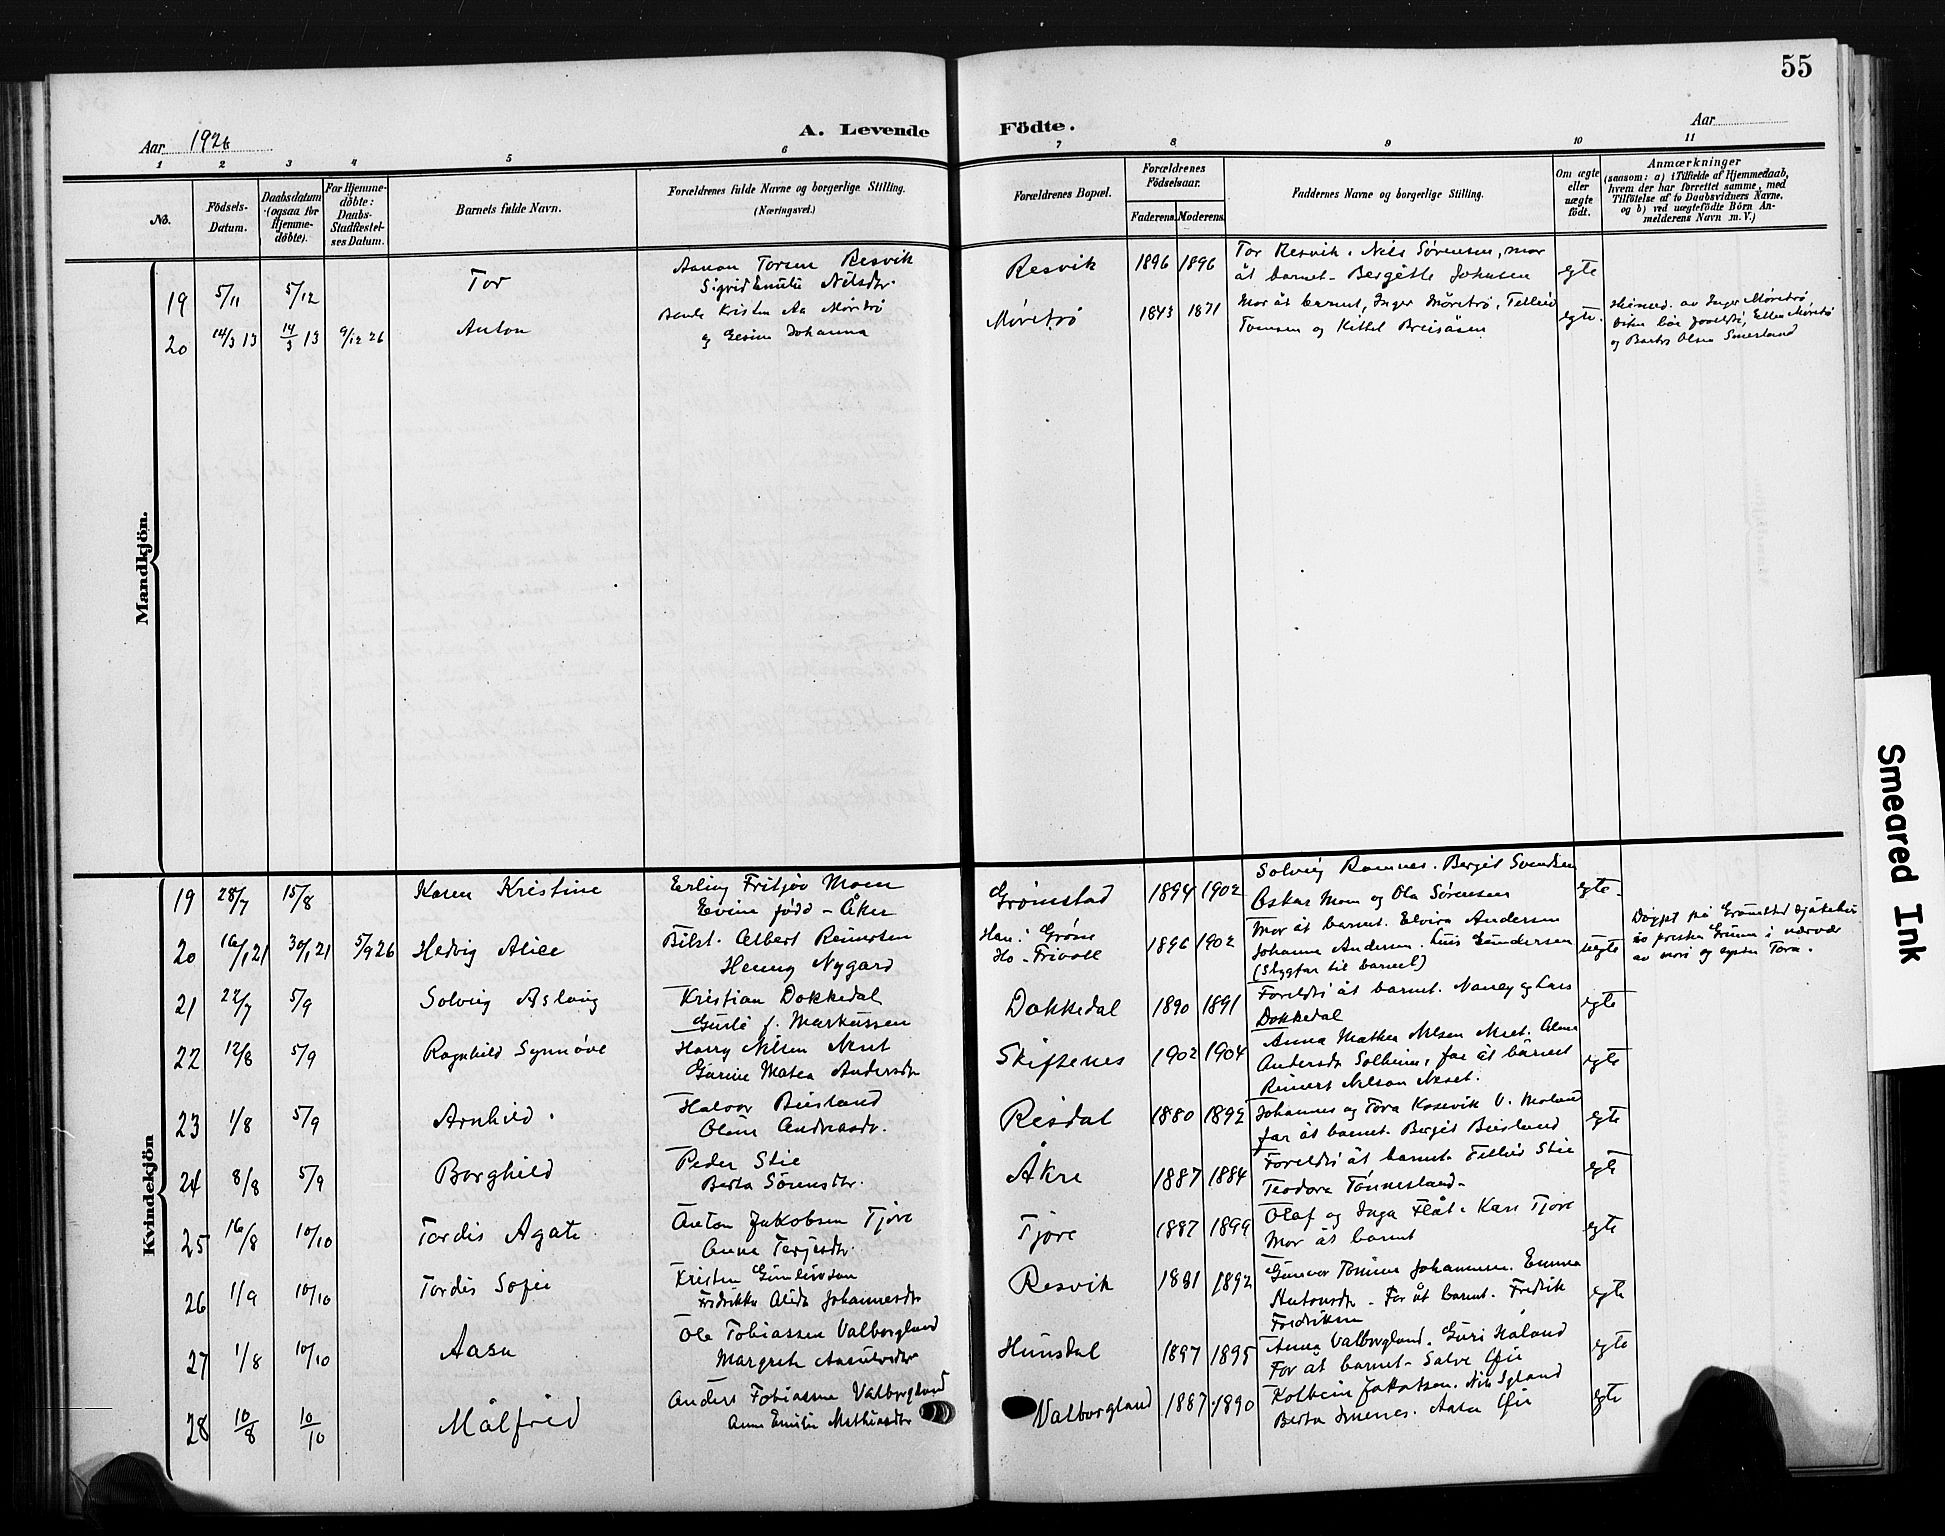 55
Aar 1926
A. Levende Födte.
Aar
1 2 3 4 5 6 7 8 9 10 11
No.
Födsels-Datum.
Daabsdatum (ogsaa for Hjemme-döbte).
For Hjemme-döbte: Daabs-Stadfæstel-ses Datum.
Barnets fulde Navn.
Forældrenes fulde Navne og borgerlige Stilling.
(Næringsvei.)
Forældrenes Bopæl.
Forældrenes Födselsaar.
Faderens. Moderens.
Faddernes Navne og borgerlige Stilling.
Om ægte eller uægte födt.
Anmærkninger
(saasom: a) i Tilfælde af Hjemmedaab,
hvem der har forrettet samme, med
Tilföielse af to Daabsvidners Navne,
og b) ved uægtefödte Börn An-
melderens Navn m. V.)
Mandkjön.
19 5/11 5/12 Tor
Torsen Resvik
Sigrid Emilie Nilsdtr.
Resvik 1896 1896
Tor Resvik. Nils Sørensen, mor
åt barnet. Bergitte Johnsen
egte
20 14/3 13 14/3 13 9/12 26 Anton
Bent Kristen Aa Møretrø
og Gesine Johanna
Møretrø 1843 1871
Mor åt barnet, Inger Møretrø. Tellev
Tomsen og Kittel Breisåsen
egte.
av Inger Møretrø,
Ellen Møretrø
og Olsen Smeland
Kvindekjön
19 28/7 15/8 Karen Kristine
Erling Fritjov Mom
Evine født - Åker
Grømstad 1894 1902
Solveig Ramnes. Bergit Svendsen
Oskar Mom og Ola Sørensen
egte.
20 16/1 21 30/1 21 5/9 26 Hedvig Alice
Bilst. Albert Reinertsen
Henny Nygård
Han: Grøm
Ho - Frivoll
1896 1902
Mor åt barnet. Elvira Andersen
Johanne Andersen. Gundersen
(Stygfar til barnet)
uegte
Døypt på Grimstad sjukehus
Grimm i nærvær
av mori og Tora.
21 22/7 5/9 Solveig Aslaug
Kristian Dokkedal
Gurli f. Markussen
Dokkedal 1890 1891
Foreldri åt barnet. Nancy og Lars
Dokkedal
egte
22 12/8 5/9 Ragnhild Synnøve
Harry Nilsen Neset
Gurine Matea Andersdtr
Skiftenes 1902 1904
Anna Mathea Nilsen Neset.
Andersdtr Solheim, far åt barnet
Reinert Nilsen Neset.
egte
23 1/8 5/9 Arnhild.
Halvor Beisland
Olene Andreasdtr.
Risdal 1880 1892
Johannes og Tora Kosevik V. Moland
far åt barnet. Bergit Beisland
egte
24 8/8 5/9 Borghild
Peder Stie
Berta Sørensdtr.
Åkre 1887 1884
Foreldri åt barnet. Tellev Stie
Teodora Tønnesland.
egte
25 16/8 10/10 Tordis Agate
Anton Jakobsen Tjore
Anna Terjesdtr.
Tjore 1887 1899
Olaf og Inga Flåt. Kari Tjore
Mor åt barnet
egte
26 1/9 10/10 Tordis Sofie
Kristen Gunleivson
Fredrikke Alida Johannesdtr
Resvik 1891 1892
Gunvor Tomine Johannesen. Emma
Antonsdtr. Far åt barnet. Fredrik
Fredriksen
egte
27 1/8 10/10 Aasa
Ole Tobiassen Valborgland
Margrete Aasulvsdtr
Hunsdal 1897 1895
Anna Valborgland. Guri Haland
Far åt barnet. Salve
egte
28 10/8 10/10 Målfrid
Anders Tobiassen Valborgland
Anna Emilie Mathiasdtr
Valborgland 1887 1890
Kolbein Jakobsen. Nils Igland
Berta Imenes. Aasa
egte
Smeared Ink